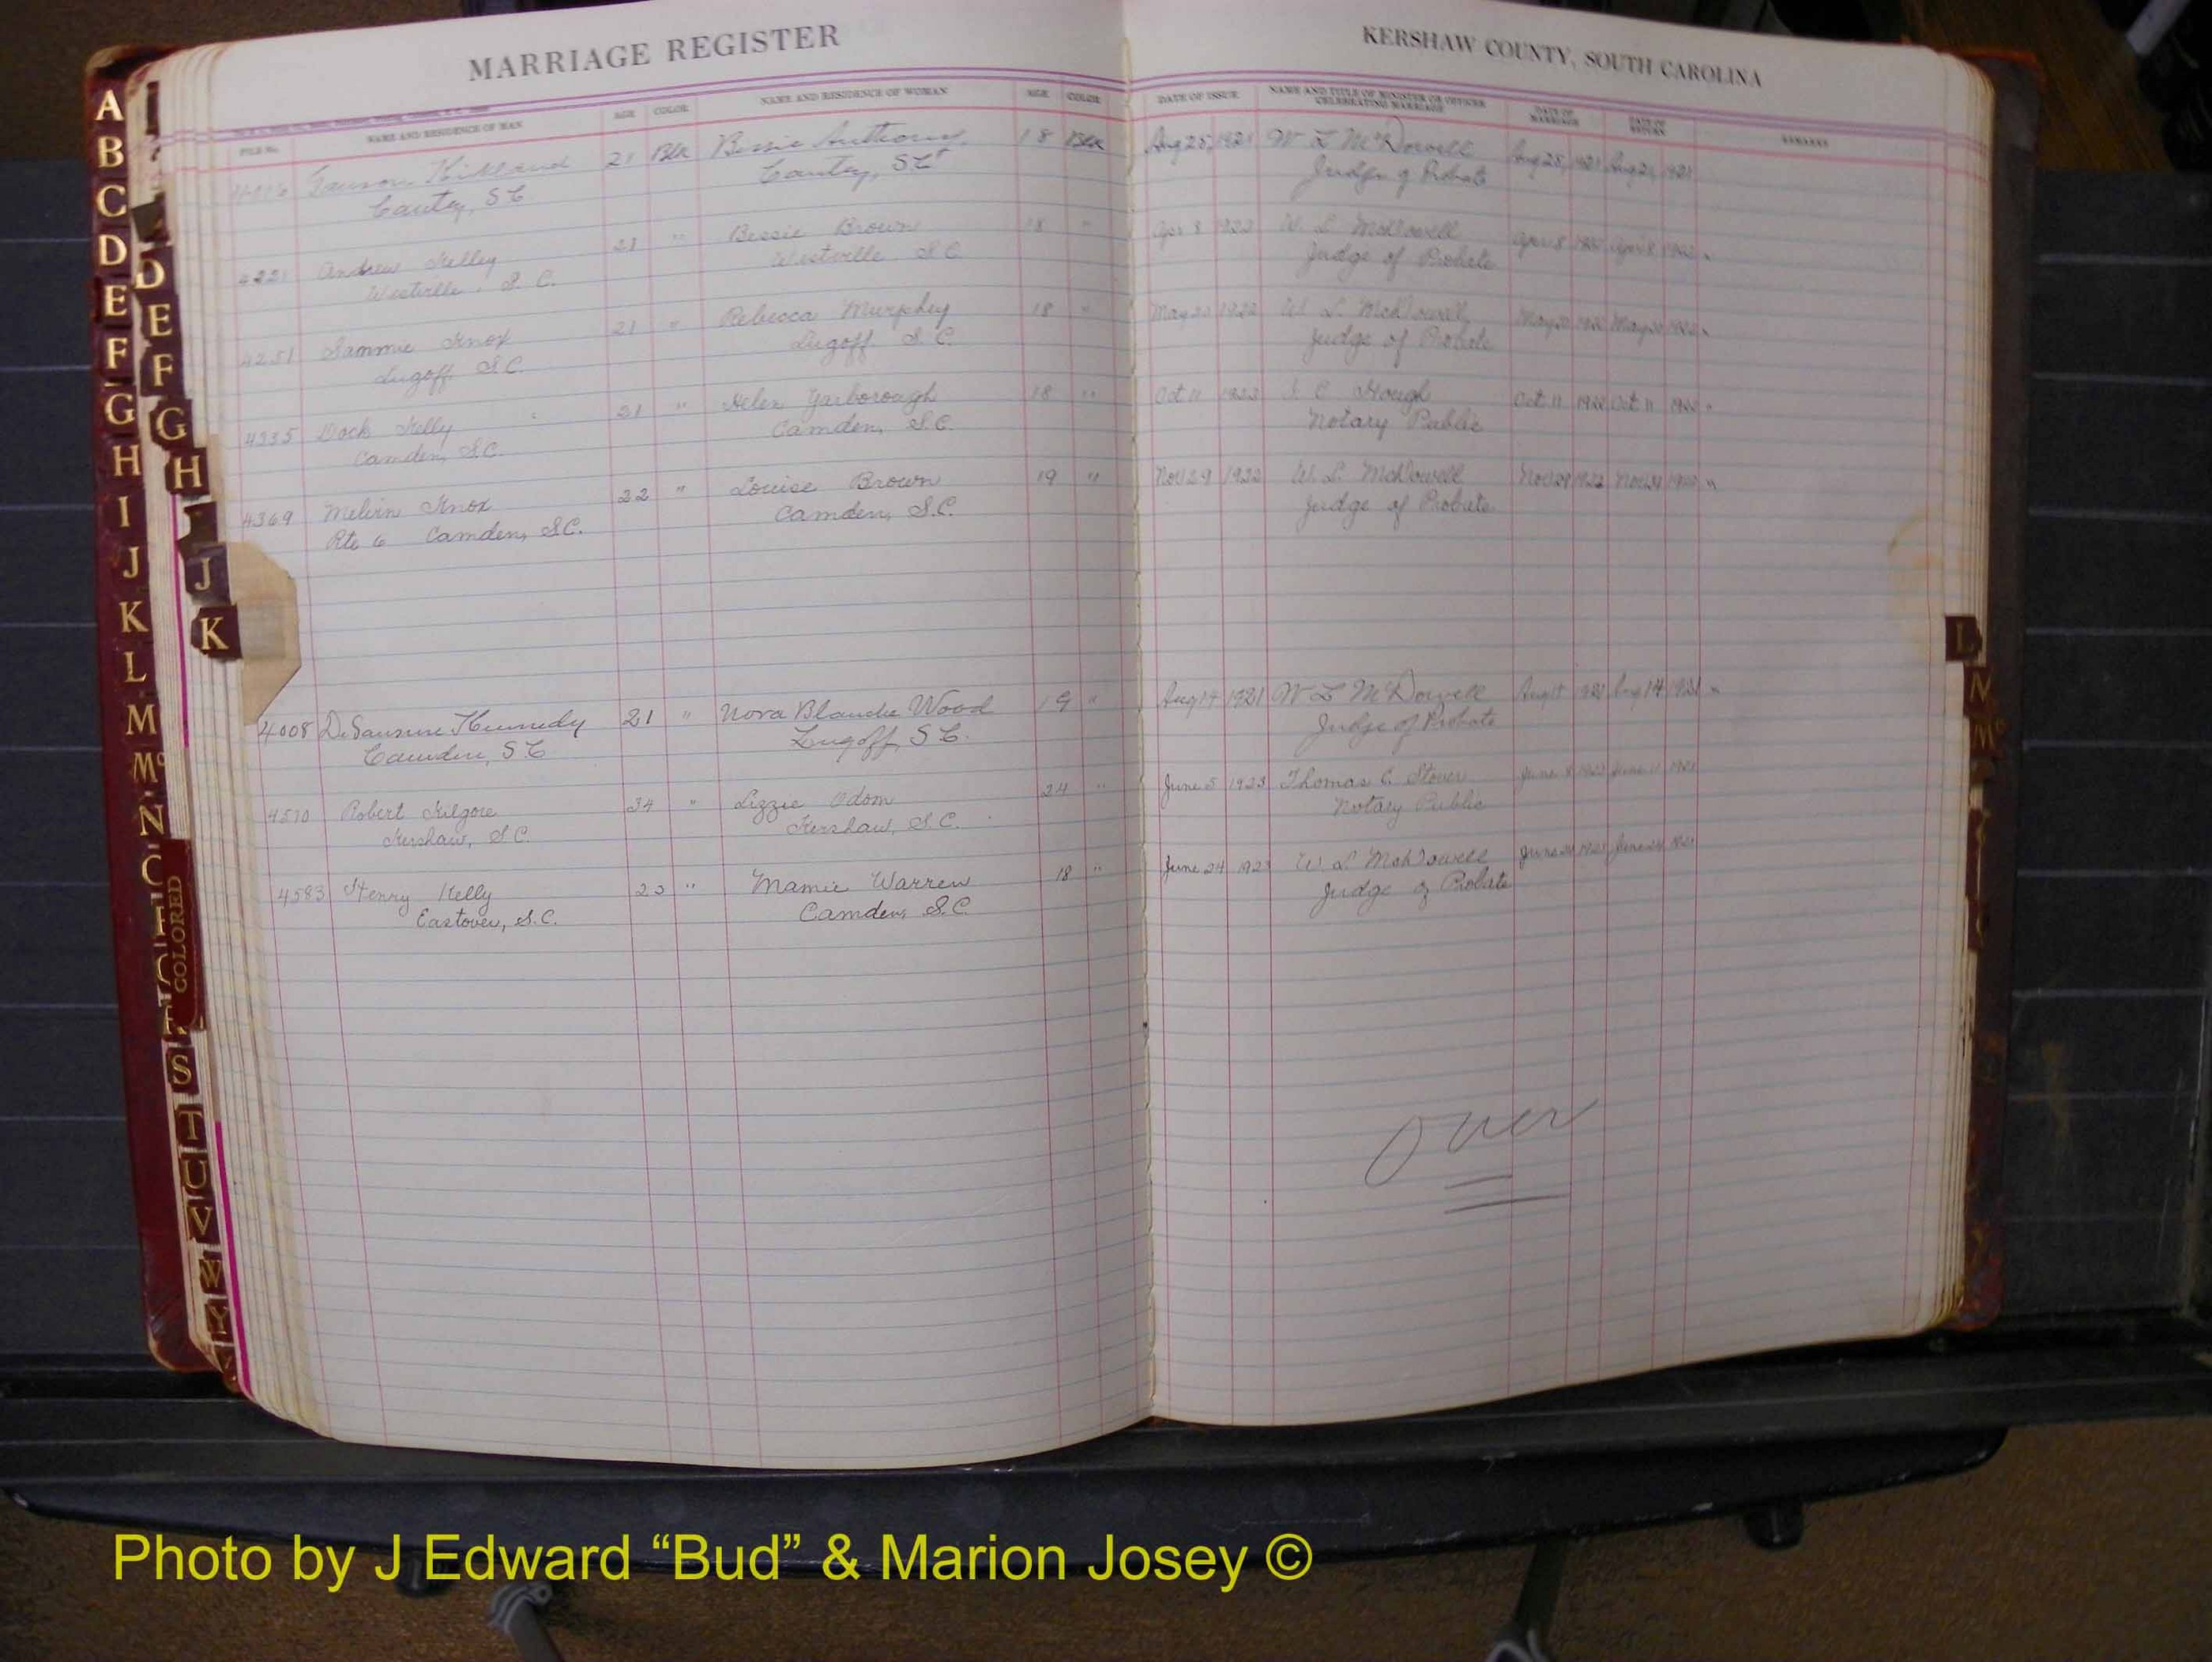 MARRIAGE REGISTER
KERSHAW COUNTY, SOUTH CAROLINA
FILE No. NAME AND RESIDENCE OF MAN AGE COLOR NAME AND RESIDENCE OF WOMAN AGE COLOR DATE OF ISSUE NAME AND TITLE OF MINISTER OR OFFICER CELEBRATING MARRIAGE DATE OF MARRIAGE DATE OF RETURN REMARKS
Kirkland 21 Blk Bessie Anthony 18 Blk Aug 25, 1921 W L McDowell Aug 25, 1921 1921
Cantey, S C. Cantey, S C Judge of Probate
4221 Andrew Kelley 21 " Bessie Brown 18 " Apr 8 W. L. McDowell Apr 8 Apr 8
Westville, S. C. Westville S C Judge of Probate
4251 Sammie Knox 21 " Rebecca Murphey 18 " May 20 1922 W. L. McDowell May 20 May 20
Lugoff, S.C. Lugoff S. C. Judge of Probate
4335 Dock Kelly 21 " Helen Yarborough 18 " Oct 11 Hough Oct 11 Oct 11
Camden, S.C. Camden, S.C. Notary Public
4369 Melvin Knox 22 " Louise Brown 19 " Nov 29 1922 W. L. McDowell
Rte 6 Camden, S.C. Camden, S.C. Judge of Probate
4008 DeSaussure Kennedy 21 " Nora Blanche Wood 19 " Aug 14 1921 W L McDowell Aug 14 1921
Camden, S C Lugoff, S C. Judge of Probate
4570 Robert Kilgore 34 " Lizzie Odom 24 " June 5 1923 Thomas C. June
Kershaw, S.C. Kershaw, S.C. Notary Public
4583 Henry Kelly " Mamie Warren 18 " June 24 1923 W. L. McDowell June 24 June 24
Eastover, S.C. Camden, S.C. Judge of Probate
Over
A
B
C
D
E
F
G
H
I
J
K
L
M
Mc
N
D
E
F
G
H
J
K
COLORED
S
T
U
V
W
Y
L
M
Mc
Photo by J Edward “Bud” & Marion Josey ©